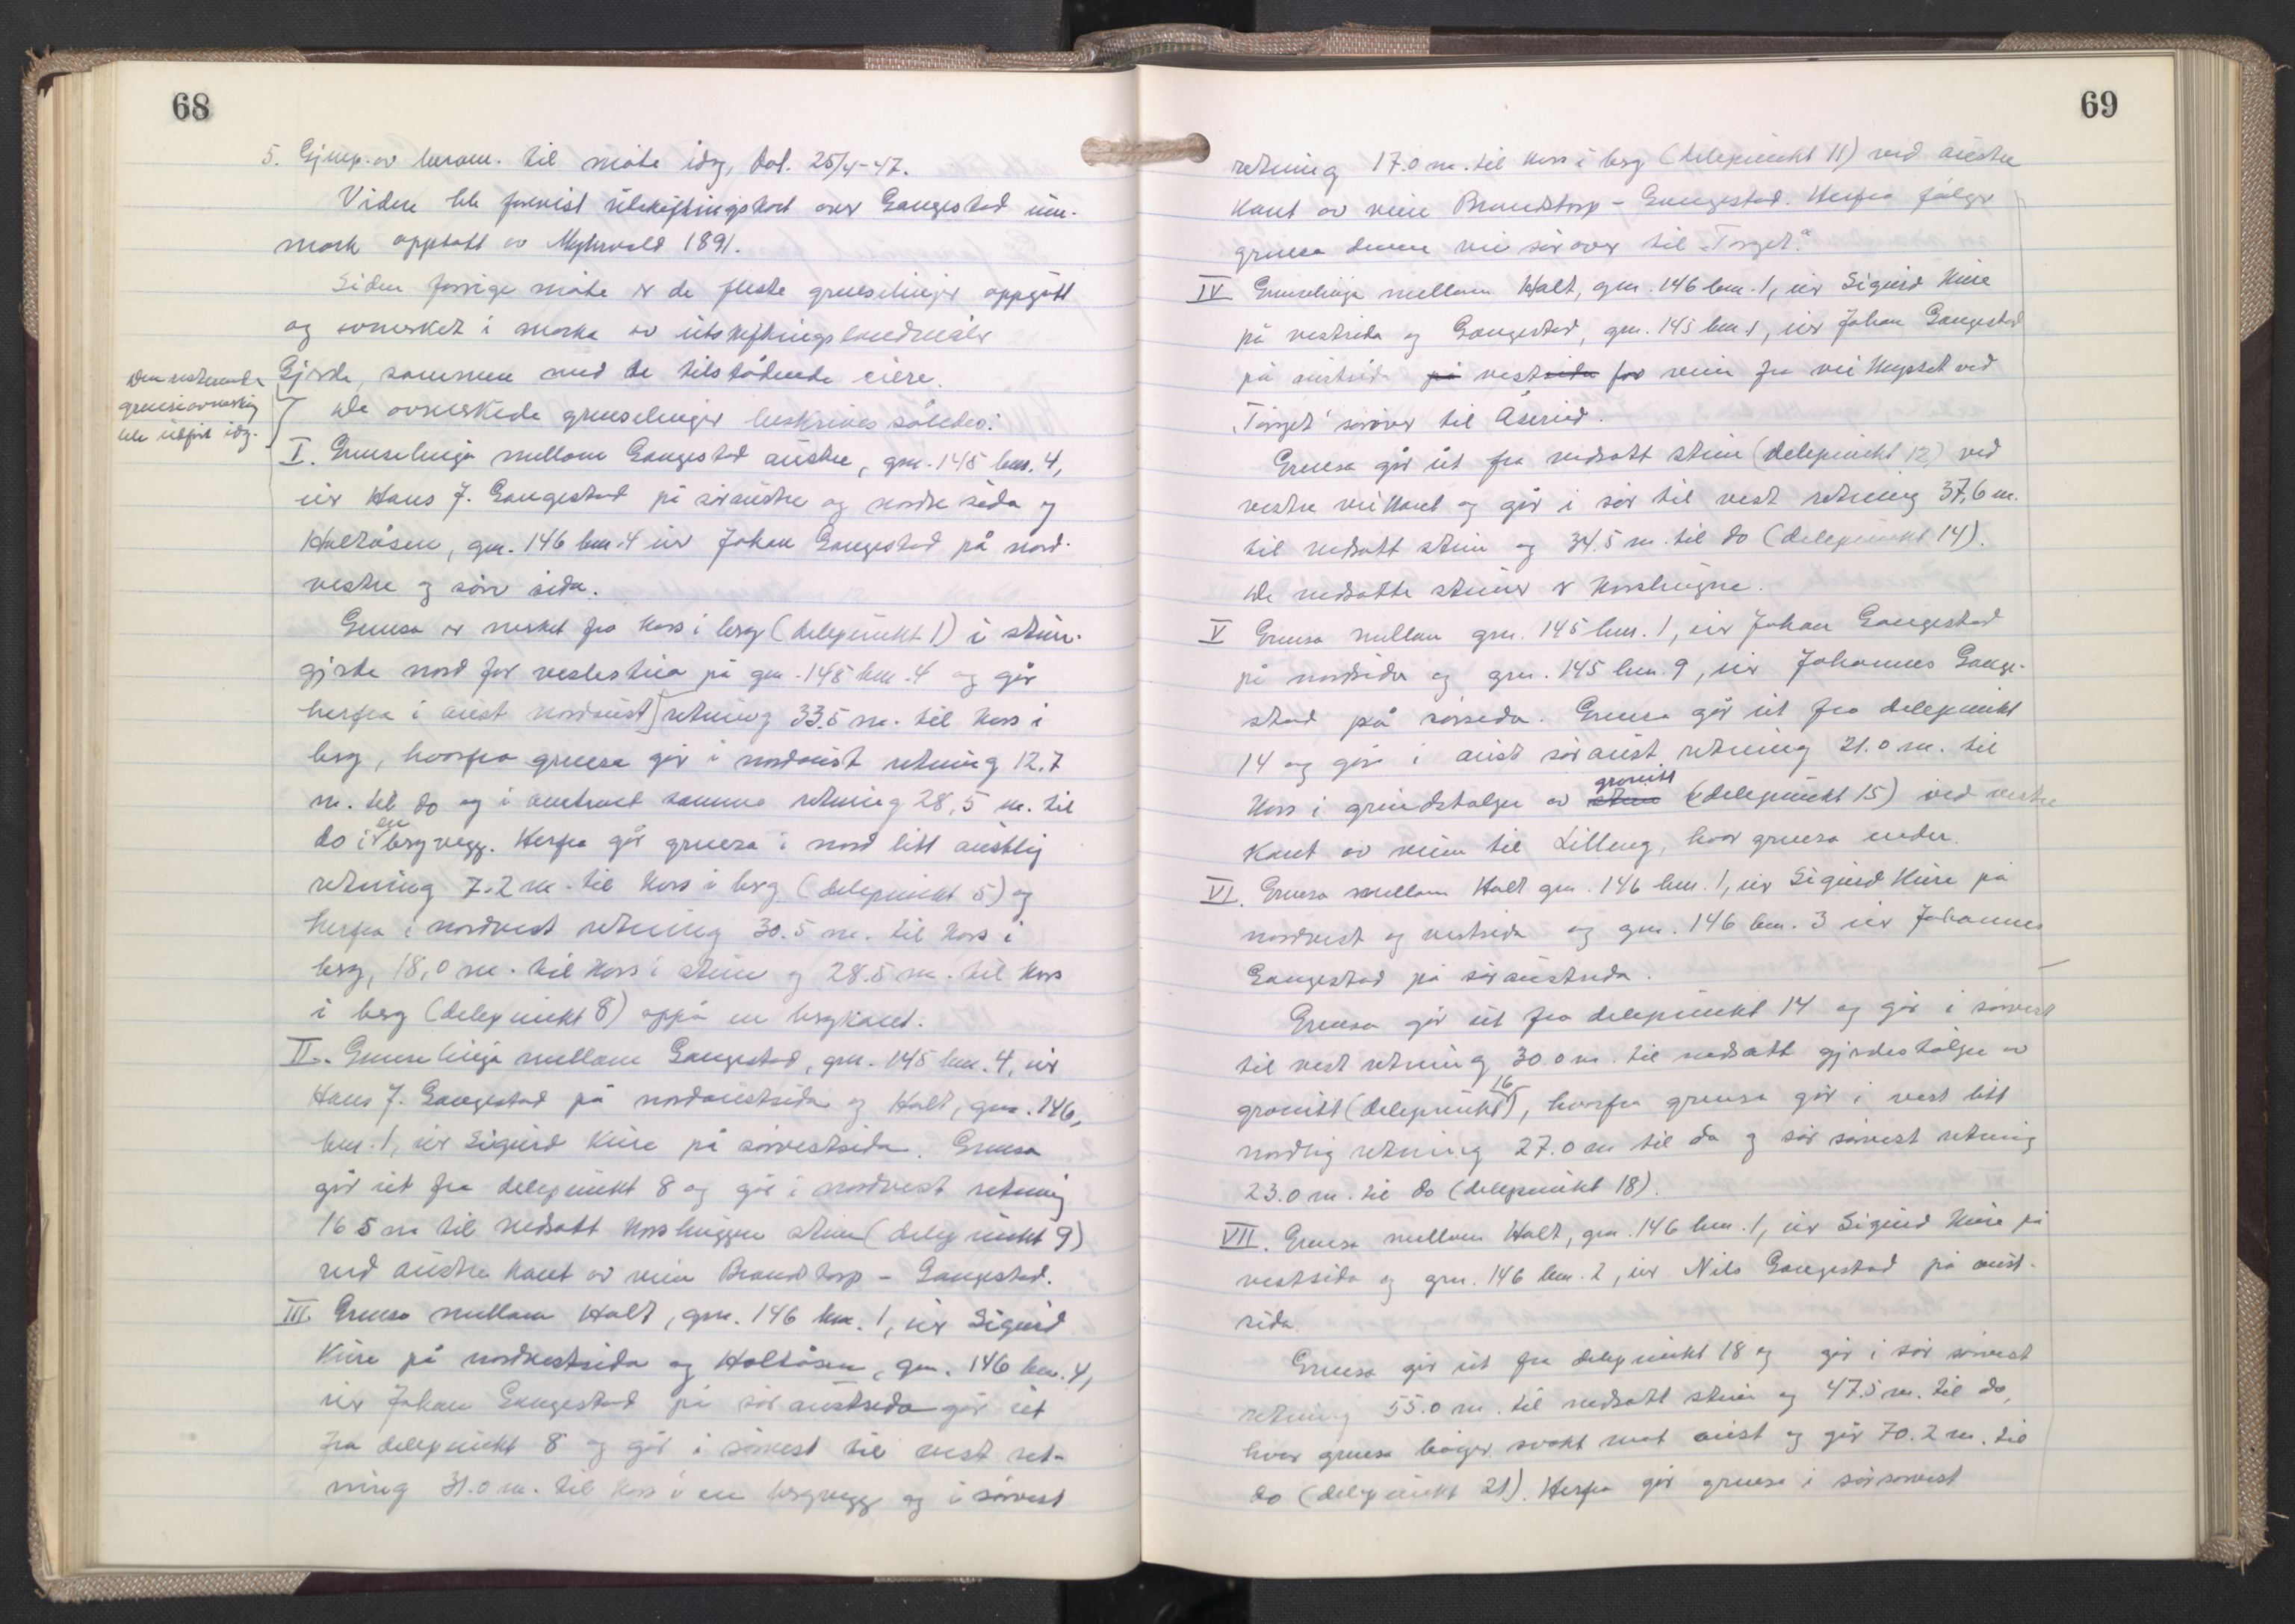 68
5. Gjenp. av beram. til møte idag, dat. 25/4-47.
Videre ble forevist utskiftingskort over Gangestad inn-
mark opptatt av Myhrvold 1891.
Siden forrige møte er de fleste grenselinjer oppgått
og avmerket i marka av utskiftingslandmåler
Gjerde, sammen med de tilstøtende eiere.
Den resterende
grenseavmerking
ble utført idag.
De avmerkede grenselinjer beskrives således:
I. Grenselinja mellom Gangestad austre, gnr. 145 bnr. 4,
eier Hans J. Gangestad på søraustre og nordre side og
Holtåsen, gnr. 146 bnr. 4 eier Johan Gangestad på nord-
vestre og søre side.
Grensa er merket fra kors i berg (delepunkt 1) i stein-
gjerde nord for vestestua på gnr. 145 bnr. 4 og går
herfra i aust nordaust retning 33.5 m. til kors i
berg, hvorfra grensa går i nordaust retning 12.7
m. til do og i omtrent samme retning 28,5 m. til
do i en bergvegg. Herfra går grensa i nord litt austlig
retning 7.2 m. til kors i berg (delepunkt 5) og
herfra i nordvest retning 30.5 m. til kors i
berg, 18,0 m. til kors i stein og 28.5 m. til kors
i berg (delepunkt 8) oppå en bergkant.
II. Grenselinja mellom Gangestad, gnr. 145 bnr. 4, eier
Hans J. Gangestad på nordaustsida og Holt, gnr. 146,
bnr. 1, eier Sigurd Kure på sørvestsida. Grensa
går ut fra delepunkt 8 og går i nordvest retning
16 5 m til nedsatt korshuggen stein (delepunkt 9)
ved austre kant av veien Brandstorp - Gangestad.
III. Grensa mellom Holt, gnr. 146 bnr. 1, eier Sigurd
Kure på nordvestsida og Holtåsen, gnr. 146 bnr. 4,
eier Johan Gangestad på søraustsida går ut
fra delepunkt 8 og går i sørvest til vest ret-
ning 31.0 m. til kors i en bergvegg og i sørvest
69
retning 17.0 m. til kors i berg (delepunkt 11) ved austre
kant av veien Brandstorp - Gangestad. Herfra følger
grensa denne vei sørover til „Torget“.
IV Grenselinja mellom Holt, gnr. 146 bnr. 1, eier Sigurd Kure
på vestsida og Gangestad, gnr. 145 bnr. 1, eier Johan Gangestad
på austsida på vestsida for veien fra veikrysset ved
„Torget“ sørover til Åserud.
Grensa går ut fra nedsatt stein (delepunkt 12) ved
vestre veikant og går i sør til vest retning 37,6 m.
til nedsatt stein og 34.5 m. til do (delepunkt 14).
De nedsatte steiner er korshugne.
V Grensa mellom gnr. 145 bnr. 1, eier Johan Gangestad
på nordsida og gnr. 145 bnr. 9, eier Johannes Gange-
stad på sørsida. Grensa går ut fra delepunkt
14 og går i aust søraust retning 21.0 m. til
kors i grindstolpe av stein granitt (delepunkt 15) ved vestre
kant av veien til Lilleng, hvor grensa ender.
VI. Grensa mellom Holt gnr. 146 bnr. 1, eier Sigurd Kure på
nordvest og vestsida og gnr. 146 bnr. 3 eier Johannes
Gangestad på søraustsida.
Grensa går ut fra delepunkt 14 og går i sørvest
til vest retning 30.0 m. til nedsatt gjerdestolpe av
granitt (delepunkt 16), hvorfra grensa går i vest litt
nordlig retning 27.0 m til do og sør sørvest retning
23.0 m. til do (delepunkt 18).
VII. Grensa mellom Holt, gnr. 146 bnr. 1, eier Sigurd Kure på
vestsida og gnr. 146 bnr. 2, eier Nils Gangestad på aust-
sida
Grensa går ut fra delepunkt 18 og går i sør sørvest
retning 55.0 m. til nedsatt stein og 47.5 m. til do,
hvor grensa bøyer svakt mot aust og går 70.2 m. til
do (delepunkt 21). Herfra går grensa i sørsørvest